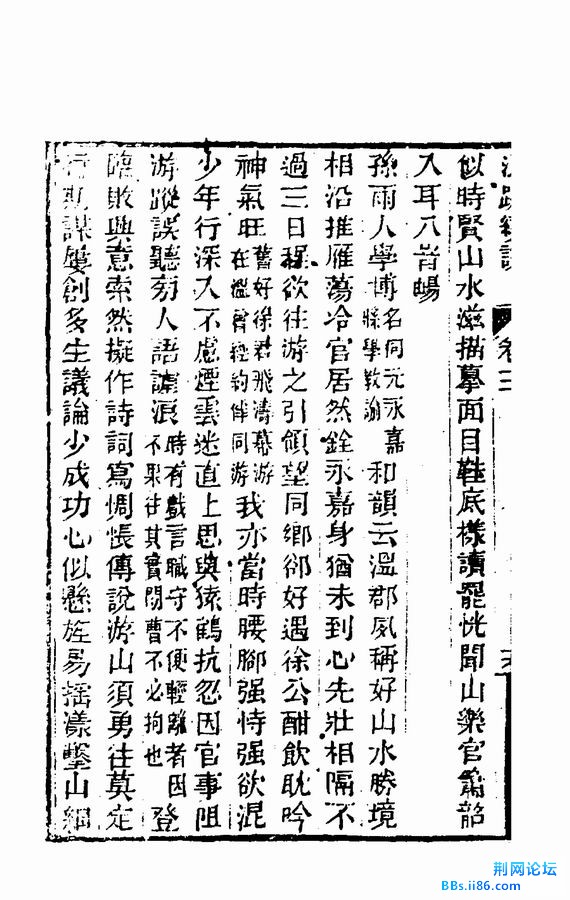 卷三
似時賢山水遊描摹面目鞋底樣讀罷恍聞山樂官簫韶
入耳八音暢
孫雨人學博名同元永嘉縣學教諭和韻云溫郡夙稱好山水勝境
相沿推雁蕩冷官居然銓永嘉身猶未到心先壯相隔不
過三日程欲往游之引領望同鄉郤好遇徐公酣飲耽吟
神氣旺舊好徐君飛濤幕游在溫曾經約伴同游我亦當時腰腳强恃强欲混
少年行深入不慮煙雲迷直上思與猿鶴抗忽因官事阻
游蹤誤聽旁人語讕浪時有戲言職守不便輕離者因不果往其實閒曹不必拘也登
臨敗興意索然擬作詩詞寫惆悵傳說游山須勇往莫定
行期謀屢創多生議論少成功心似懸旌易搖漾鑿山
荆网论坛
BBs.ii86.com